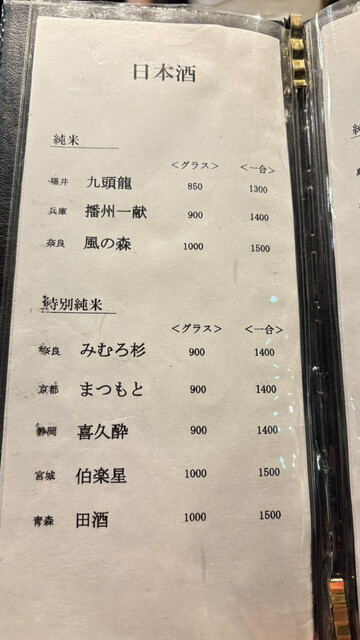 日本酒
純米
<グラス> <一合>
福井 九頭龍 850 1300
兵庫 播州一献 900 1400
奈良 風の森 1000 1500
特別純米
<グラス> <一合>
奈良 みむろ杉 900 1400
京都 まつもと 900 1400
静岡 喜久酔 900 1400
宮城 伯楽星 1000 1500
青森 田酒 1000 1500